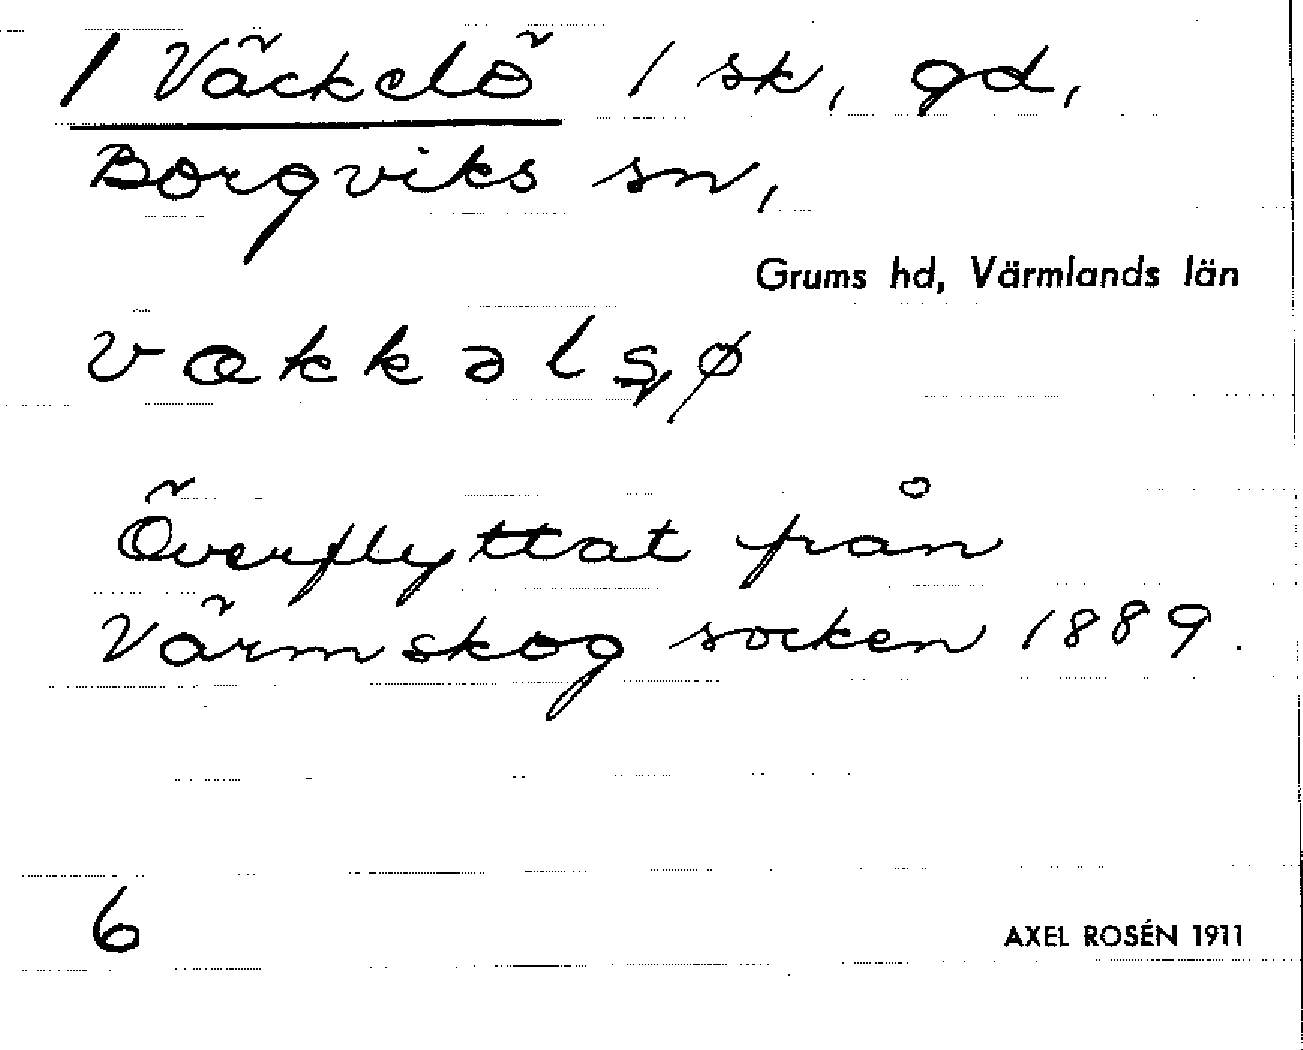 / Väckelö / sk, gd,
Borgviks sn,
Grums hd, Värmlands län
Överflyttat från
Värmskog socken 1889.
6
AXEL ROSÉN 1911